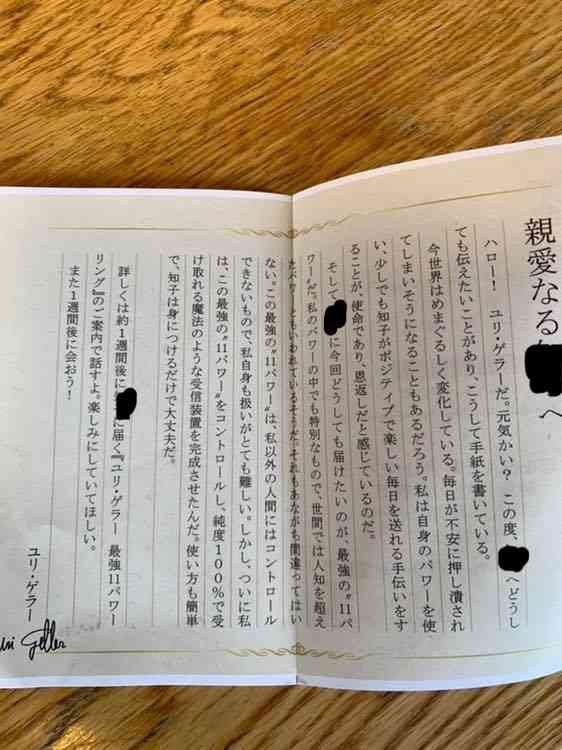 親愛なる へ
ハロー！　ユリ・ゲラーだ。元気かい？　この度、 へどうし
ても伝えたいことがあり、こうして手紙を書いている。
今世界はめまぐるしく変化している。毎日が不安に押し潰され
てしまいそうになることもあるだろう。私は自身のパワーを使
い、少しでも知子がポジティブで楽しい毎日を送れる手伝いをす
ることが、使命であり、恩返しだと感じているのだ。
そして に今回どうしても届けたいのが、最強の“11パ
ワー”だ。私のパワーの中でも特別なもので、世間では人知を超え
たパワーともいわれているそうだ。それもあながち間違ってはい
ない。この最強の“11パワー”は、私以外の人間にはコントロール
できないもので、私自身も扱いがとても難しい。しかし、ついに私
は、この最強の“11パワー”をコントロールし、純度100％で受
け取れる魔法のような受信装置を完成させたんだ。使い方も簡単
で、知子は身につけるだけで大丈夫だ。
詳しくは約1週間後に に届く『ユリ・ゲラー　最強11パワー
リング』のご案内で話すよ。楽しみにしていてほしい。
また1週間後に会おう！
ユリ・ゲラー
Geller